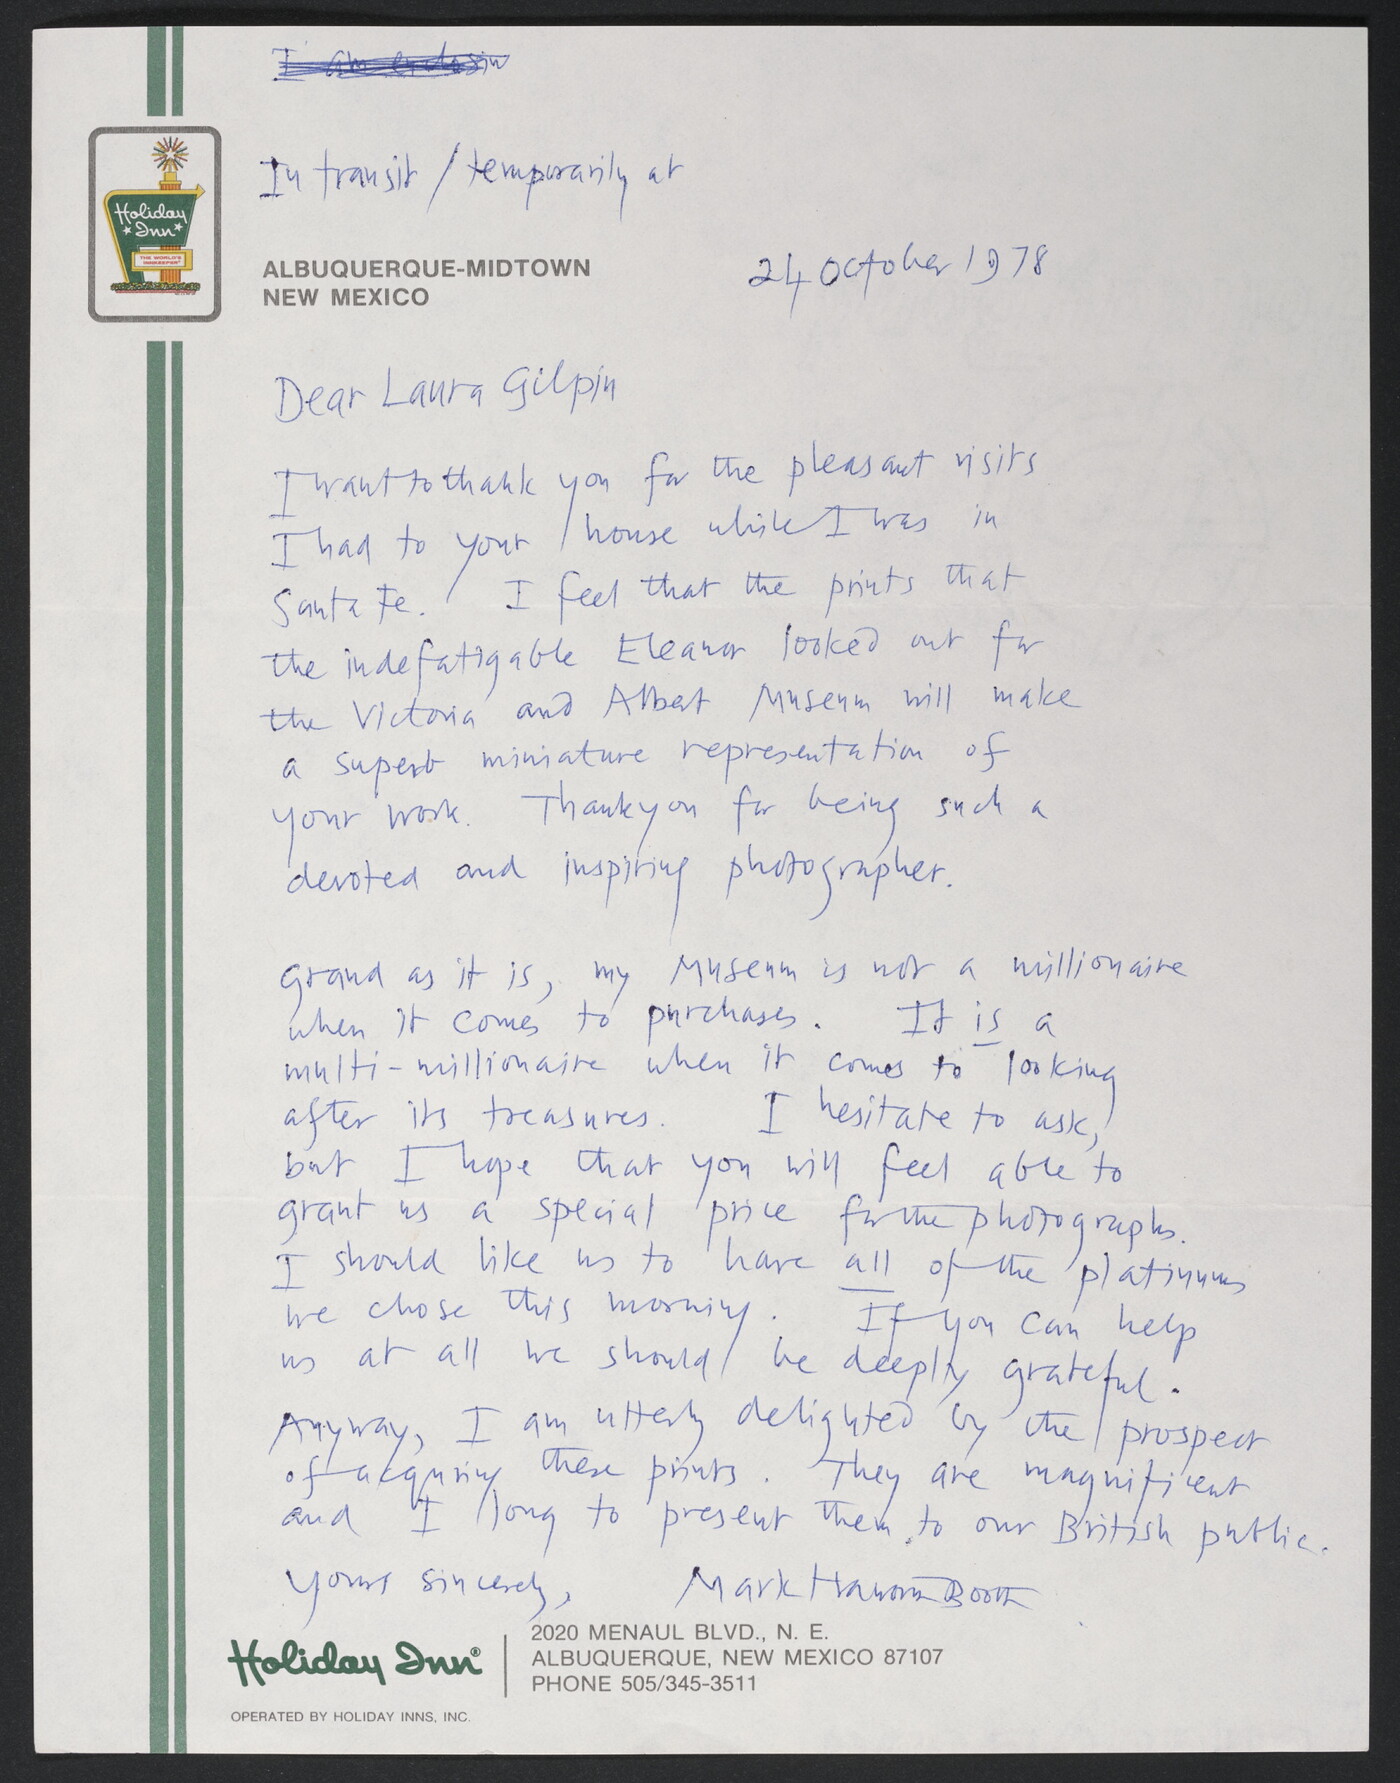 I am enclosin
In transit / temporarily at
Holiday
Inn
THE WORLD'S
INNKEEPER
ALBUQUERQUE-MIDTOWN
NEW MEXICO
24 October 1978
Dear Laura Gilpin
I want to thank you for the pleasant visits
I had to your house while I was in
Santa Fe. I feel that the prints that
the indefatigable Eleanor looked out for
the Victoria and Albert Museum will make
a superb miniature representation of
your work. Thankyou for being such a
devoted and inspiring photographer.
Grand as it is, my Museum is not a millionaire
when it comes to purchases. It is a
multi-millionaire when it comes to looking
after its treasures. I hesitate to ask,
but I hope that you will feel able to
grant us a special price for the photographs.
I should like us to have all of the platinums
we chose this morning. If you can help
us at all we should be deeply grateful.
Anyway, I am utterly delighted by the prospect
of acquiring these prints. They are magnificent
and I long to present them to our British public.
Yours sincerely, Mark Haworth-Booth
Holiday Inn®
2020 MENAUL BLVD., N. E.
ALBUQUERQUE, NEW MEXICO 87107
PHONE 505/345-3511
OPERATED BY HOLIDAY INNS, INC.